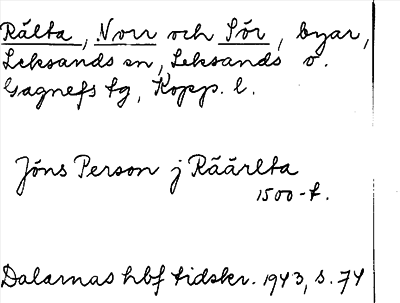 Rälta, Norr och Sör, byar,
Leksands sn, Leksands o.
Gagnefs tg, Kopp. l.
Jöns Person j Räärlta
1500-t.
Dalarnas hbf tidskr. 1943, s. 74